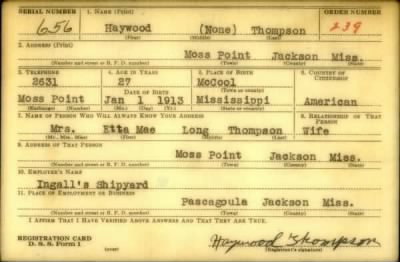 SERIAL NUMBER 1. NAME (Print) ORDER NUMBER
656 Haywood (None) Thompson 239
(First) (Middle) (Last)
2. ADDRESS (Print)
Moss Point Jackson Miss.
(Number and street or R. F. D. number) (Town) (County) (State)
3. TELEPHONE 4. AGE IN YEARS 5. PLACE OF BIRTH 6. COUNTRY OF CITIZENSHIP
2631 27 McCool
DATE OF BIRTH (Town or county)
Moss Point Jan 1 1913 Mississippi American
(Exchange) (Number) (Mo.) (Day) (Yr.) (State or country)
7. NAME OF PERSON WHO WILL ALWAYS KNOW YOUR ADDRESS 8. RELATIONSHIP OF THAT PERSON
Mrs. Etta Mae Long Thompson Wife
(Mr., Mrs., Miss) (First) (Middle) (Last)
9. ADDRESS OF THAT PERSON
Moss Point Jackson Miss.
(Number and street or R. F. D. number) (Town) (County) (State)
10. EMPLOYER'S NAME
Ingall's Shipyard
11. PLACE OF EMPLOYMENT OR BUSINESS
Pascagoula Jackson Miss.
(Number and street or R. F. D. number) (Town) (County) (State)
I AFFIRM THAT I HAVE VERIFIED ABOVE ANSWERS AND THAT THEY ARE TRUE.
REGISTRATION CARD
D. S. S. Form 1 Haywood Thompson
(Registrant's signature)